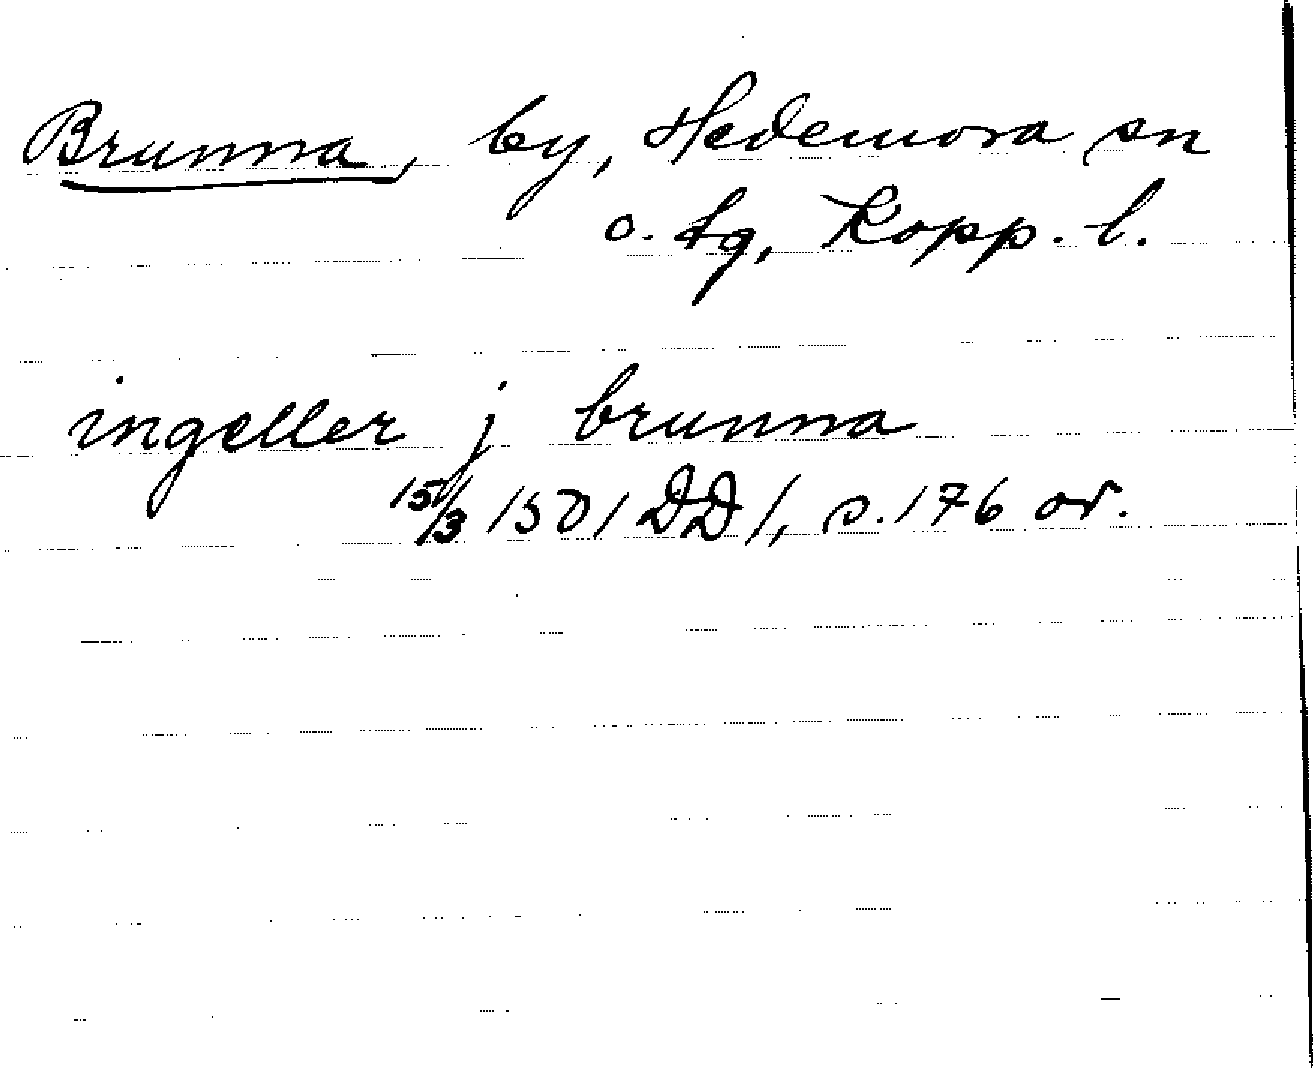 Brunna, by, Hedemora sn
o. tg, Kopp. l.
ingeller j brunna
15/3 1501 DD 1, s. 176 or.